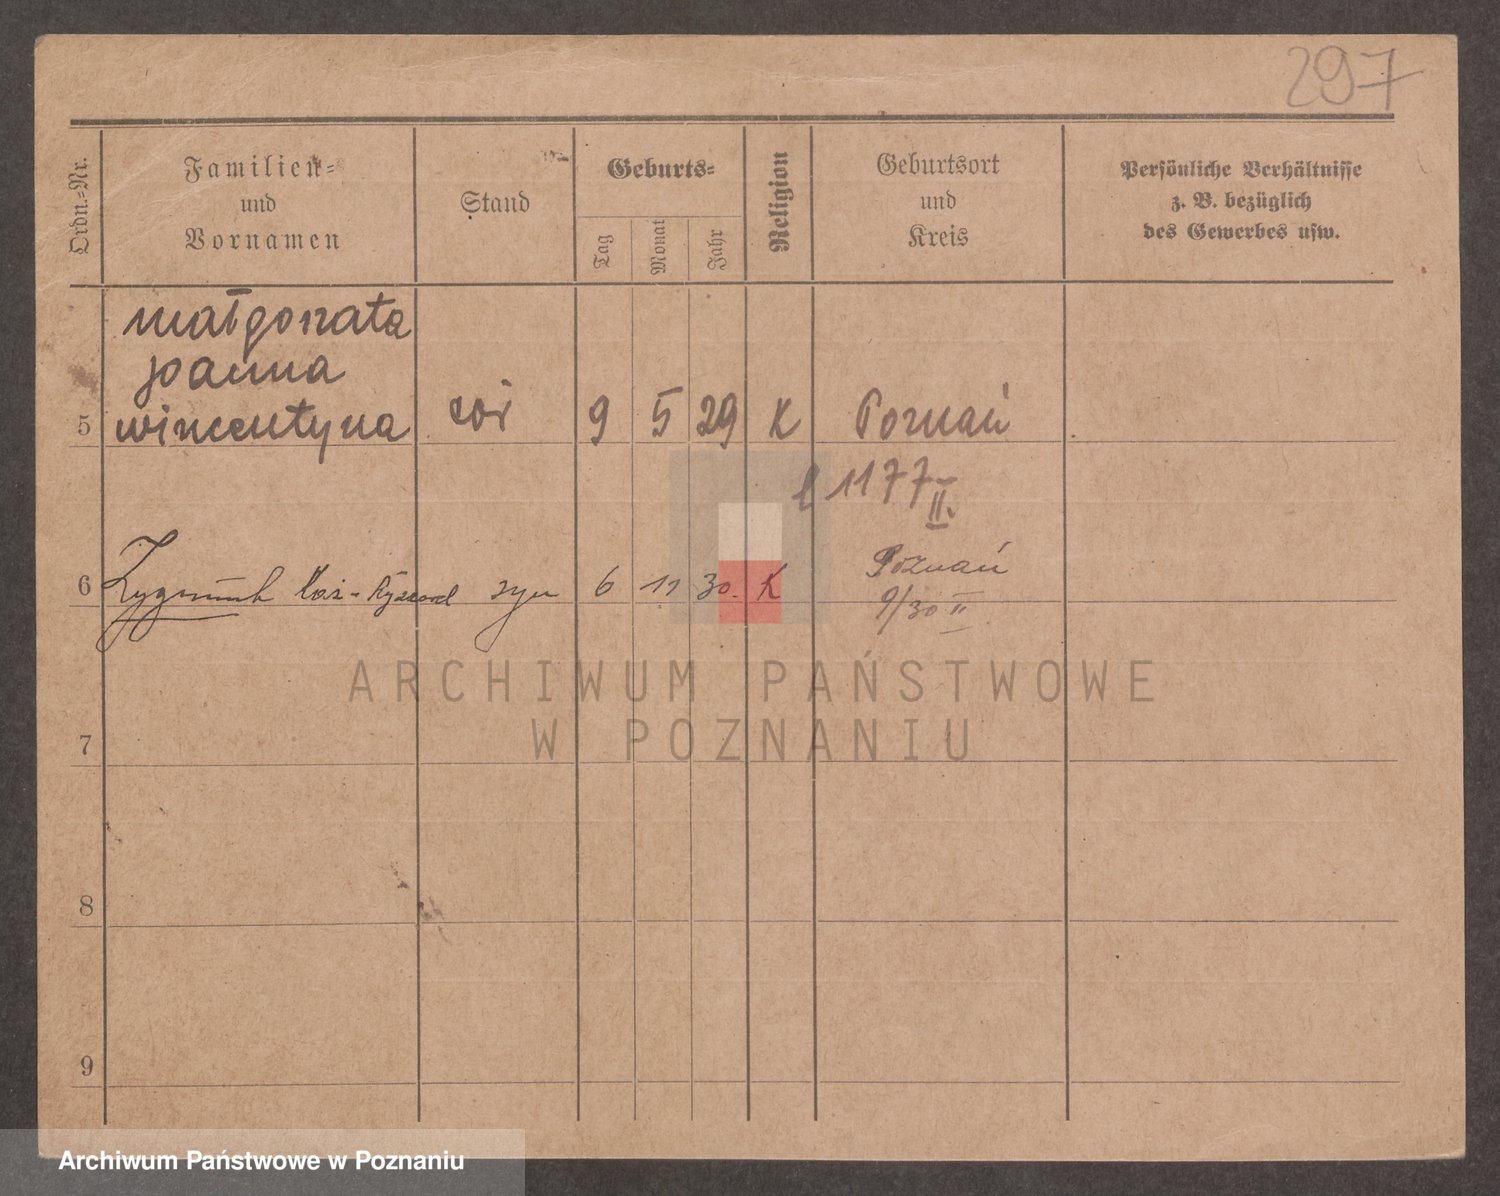 297
Ordn.=Nr.
Familien=
und
Vornamen
Stand
Geburts=
Tag
Monat
Jahr
Religion
Geburtsort
und
Kreis
Persönliche Verhältnisse
z. B. bezüglich
des Gewerbes usw.
małgorzata
joanna
5 wincentyna cór 9 5 29 K Poznań
1177 II.
6 Zygmunt Ryszard syn 6 11 30. K Poznań
9/30 II
ARCHIWUM PAŃSTWOWE
W POZNANIU
7
8
9
Archiwum Państwowe w Poznaniu